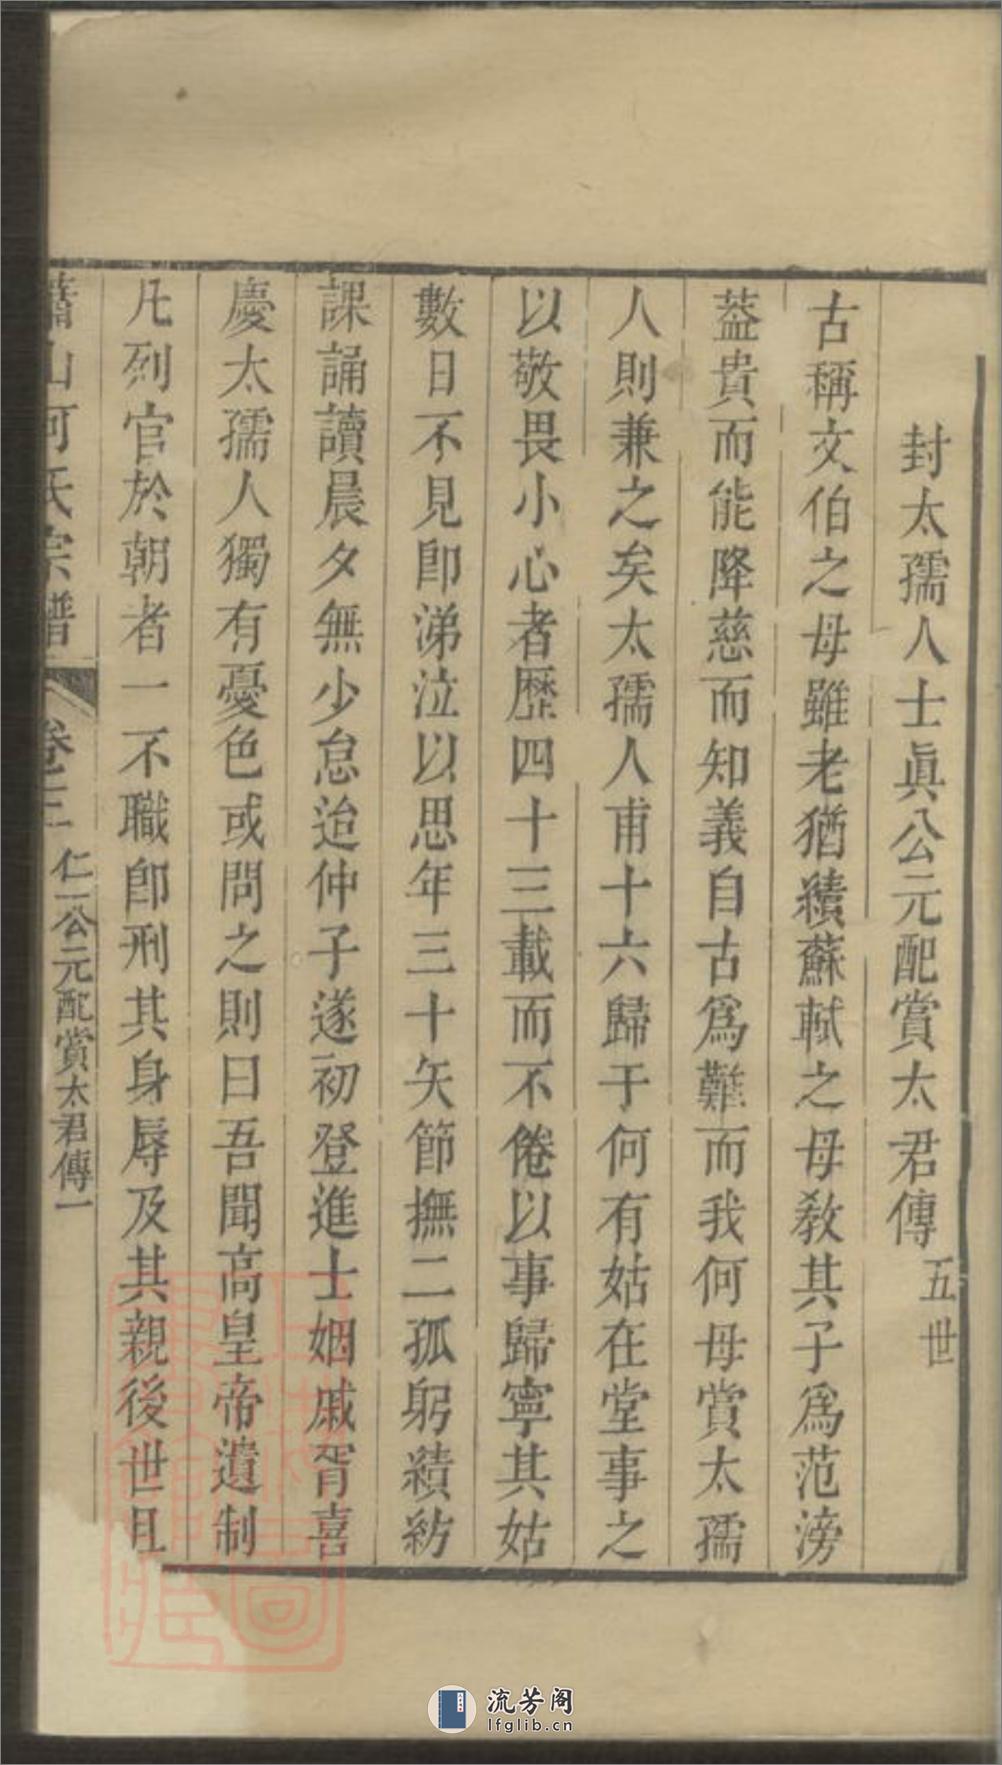 封太孺人士眞公元配賞太君傳 五世
古稱文伯之母雖老猶績蘇軾之母敎其子爲范滂
葢貴而能降慈而知義自古爲難而我何母賞太孺
人則兼之矣太孺人甫十六歸于何有姑在堂事之
以敬畏小心者歷四十三載而不倦以事歸寧其姑
數日不見卽涕泣以思年三十矢節撫二孤躬績紡
課誦讀晨夕無少怠迨仲子遂初登進士姻戚胥喜
慶太孺人獨有憂色或問之則曰吾聞高皇帝遺制
凡列官於朝者一不職卽刑其身辱及其親後世且
蕭山何氏宗譜 卷二 仁一公元配賞太君傳一
流芳阁
lfglib.cn